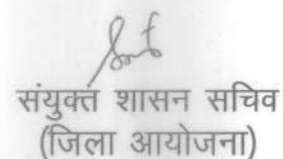 संयुक्त शासन सचिव
(जिला आयोजना)